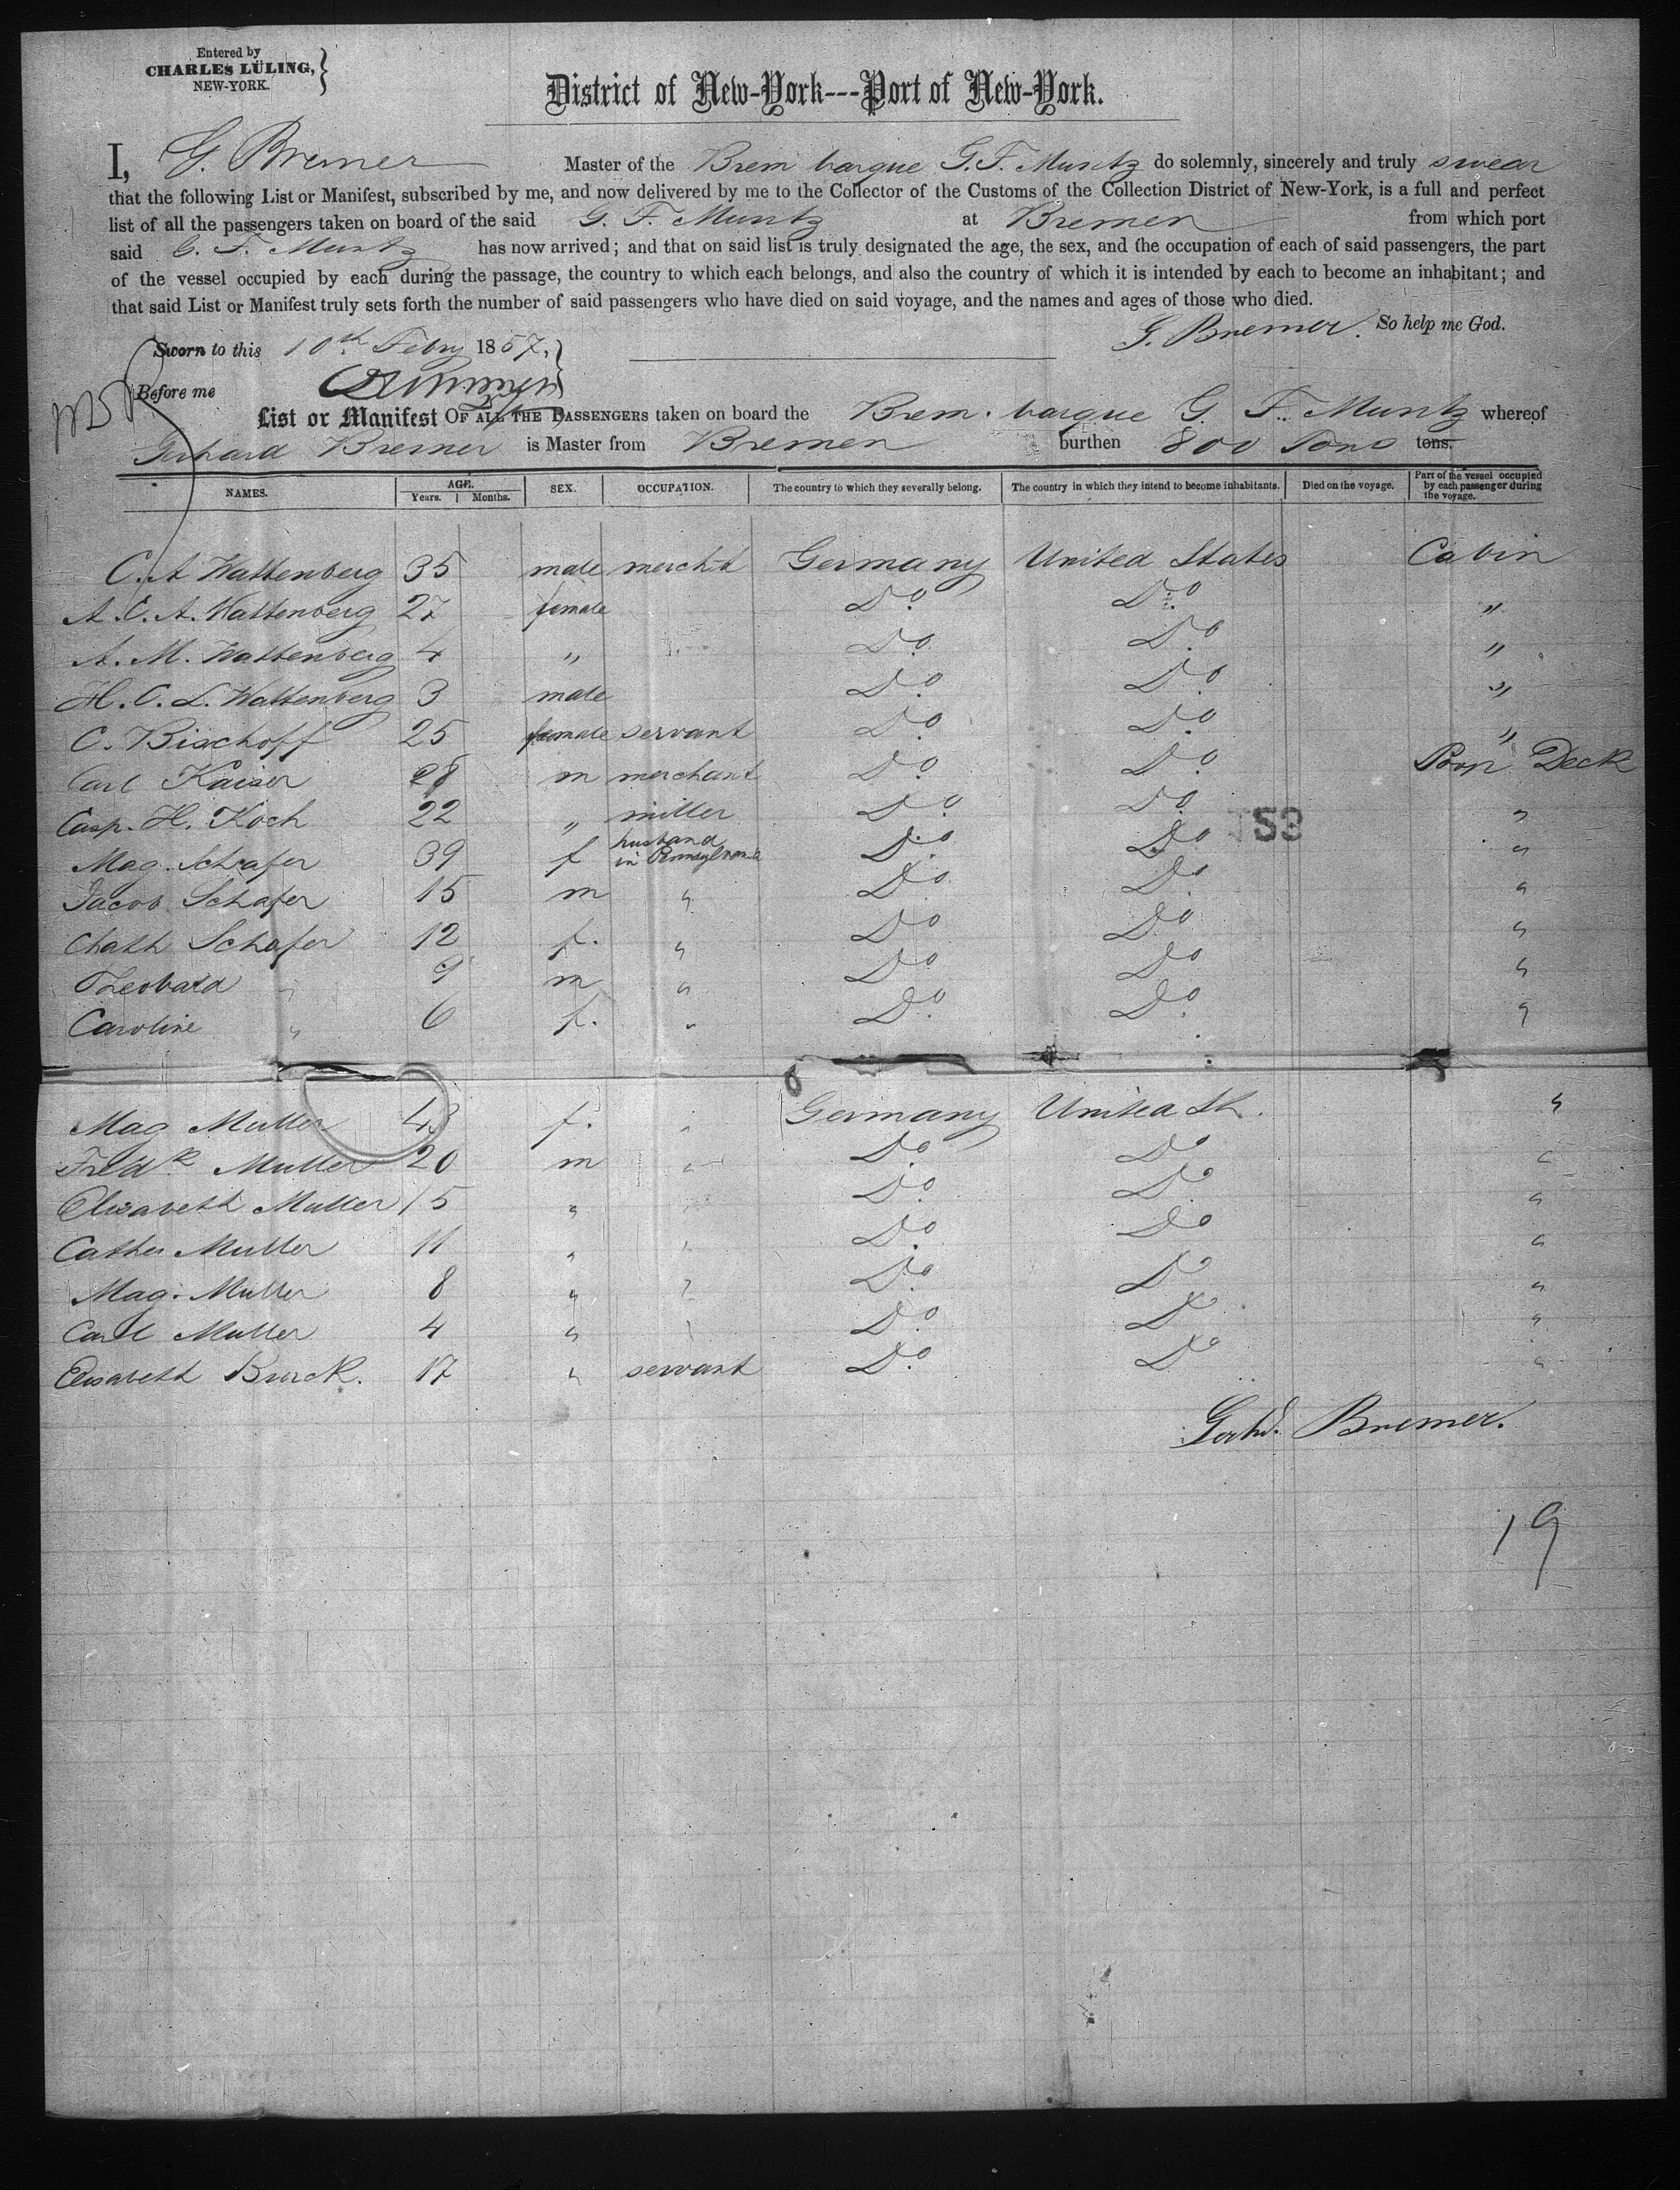 Entered by
CHARLES LÜLING,
NEW-YORK.
District of New-York---Port of New-York.
I, G. Bremer Master of the Brem barque G. F. Muntz do solemnly, sincerely and truly swear
that the following List or Manifest, subscribed by me, and now delivered by me to the Collector of the Customs of the Collection District of New-York, is a full and perfect
list of all the passengers taken on board of the said G. F. Muntz at Bremen from which port
said G. F. Muntz has now arrived; and that on said list is truly designated the age, the sex, and the occupation of each of said passengers, the part
of the vessel occupied by each during the passage, the country to which each belongs, and also the country of which it is intended by each to become an inhabitant; and
that said List or Manifest truly sets forth the number of said passengers who have died on said voyage, and the names and ages of those who died.
G. Bremer. So help me God.
Sworn to this 10th Feby 1857,
Before me
List or Manifest OF ALL THE PASSENGERS taken on board the Brem. barque G. F. Muntz whereof
Gerhard Bremer is Master from Bremen burthen 800 Tons tons.
NAMES. AGE. Years. Months. SEX. OCCUPATION. The country to which they severally belong. The country in which they intend to become inhabitants. Died on the voyage. Part of the vessel occupied by each passenger during the voyage.
C. A Wattenberg 35 male mercht Germany United States Cabin
A. C. A. Wattenberg 27 female Do. Do. "
A. M. Wattenberg 4 " Do. Do. "
H. C. L. Wattenberg 3 male Do. Do. "
C. Bischoff 25 female servant Do. Do. "
Carl Kaiser 28 m merchant Do. Do. Poop Deck
Casp. H. Koch 22 " miller Do. Do. "
53
Mag. Schafer 39 f husband in Pennsylvania Do. Do. "
Jacob Schafer 15 m " Do. Do. "
Chath Schafer 12 f. " Do Do. "
Theobald " 9 m " Do. Do. "
Caroline " 6 f. " Do. Do. "
Mag Muller 43 f. " Germany United St. "
Fredk Muller 20 m " Do. Do "
Elisabeth Muller 15 " " Do. Do. "
Cathr Muller 11 " " Do. Do "
Mag. Muller 8 " " Do. Do "
Carl Muller 4 " " Do. Do "
Elisabeth Burck. 17 " servant Do. Do "
Gerhd. Bremer.
19